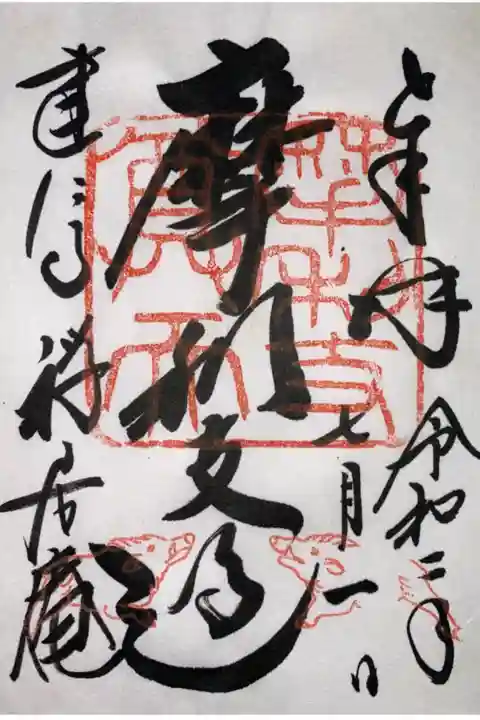 奉拝 令和二年
七月一日
摩利支
建仁寺 禅居庵